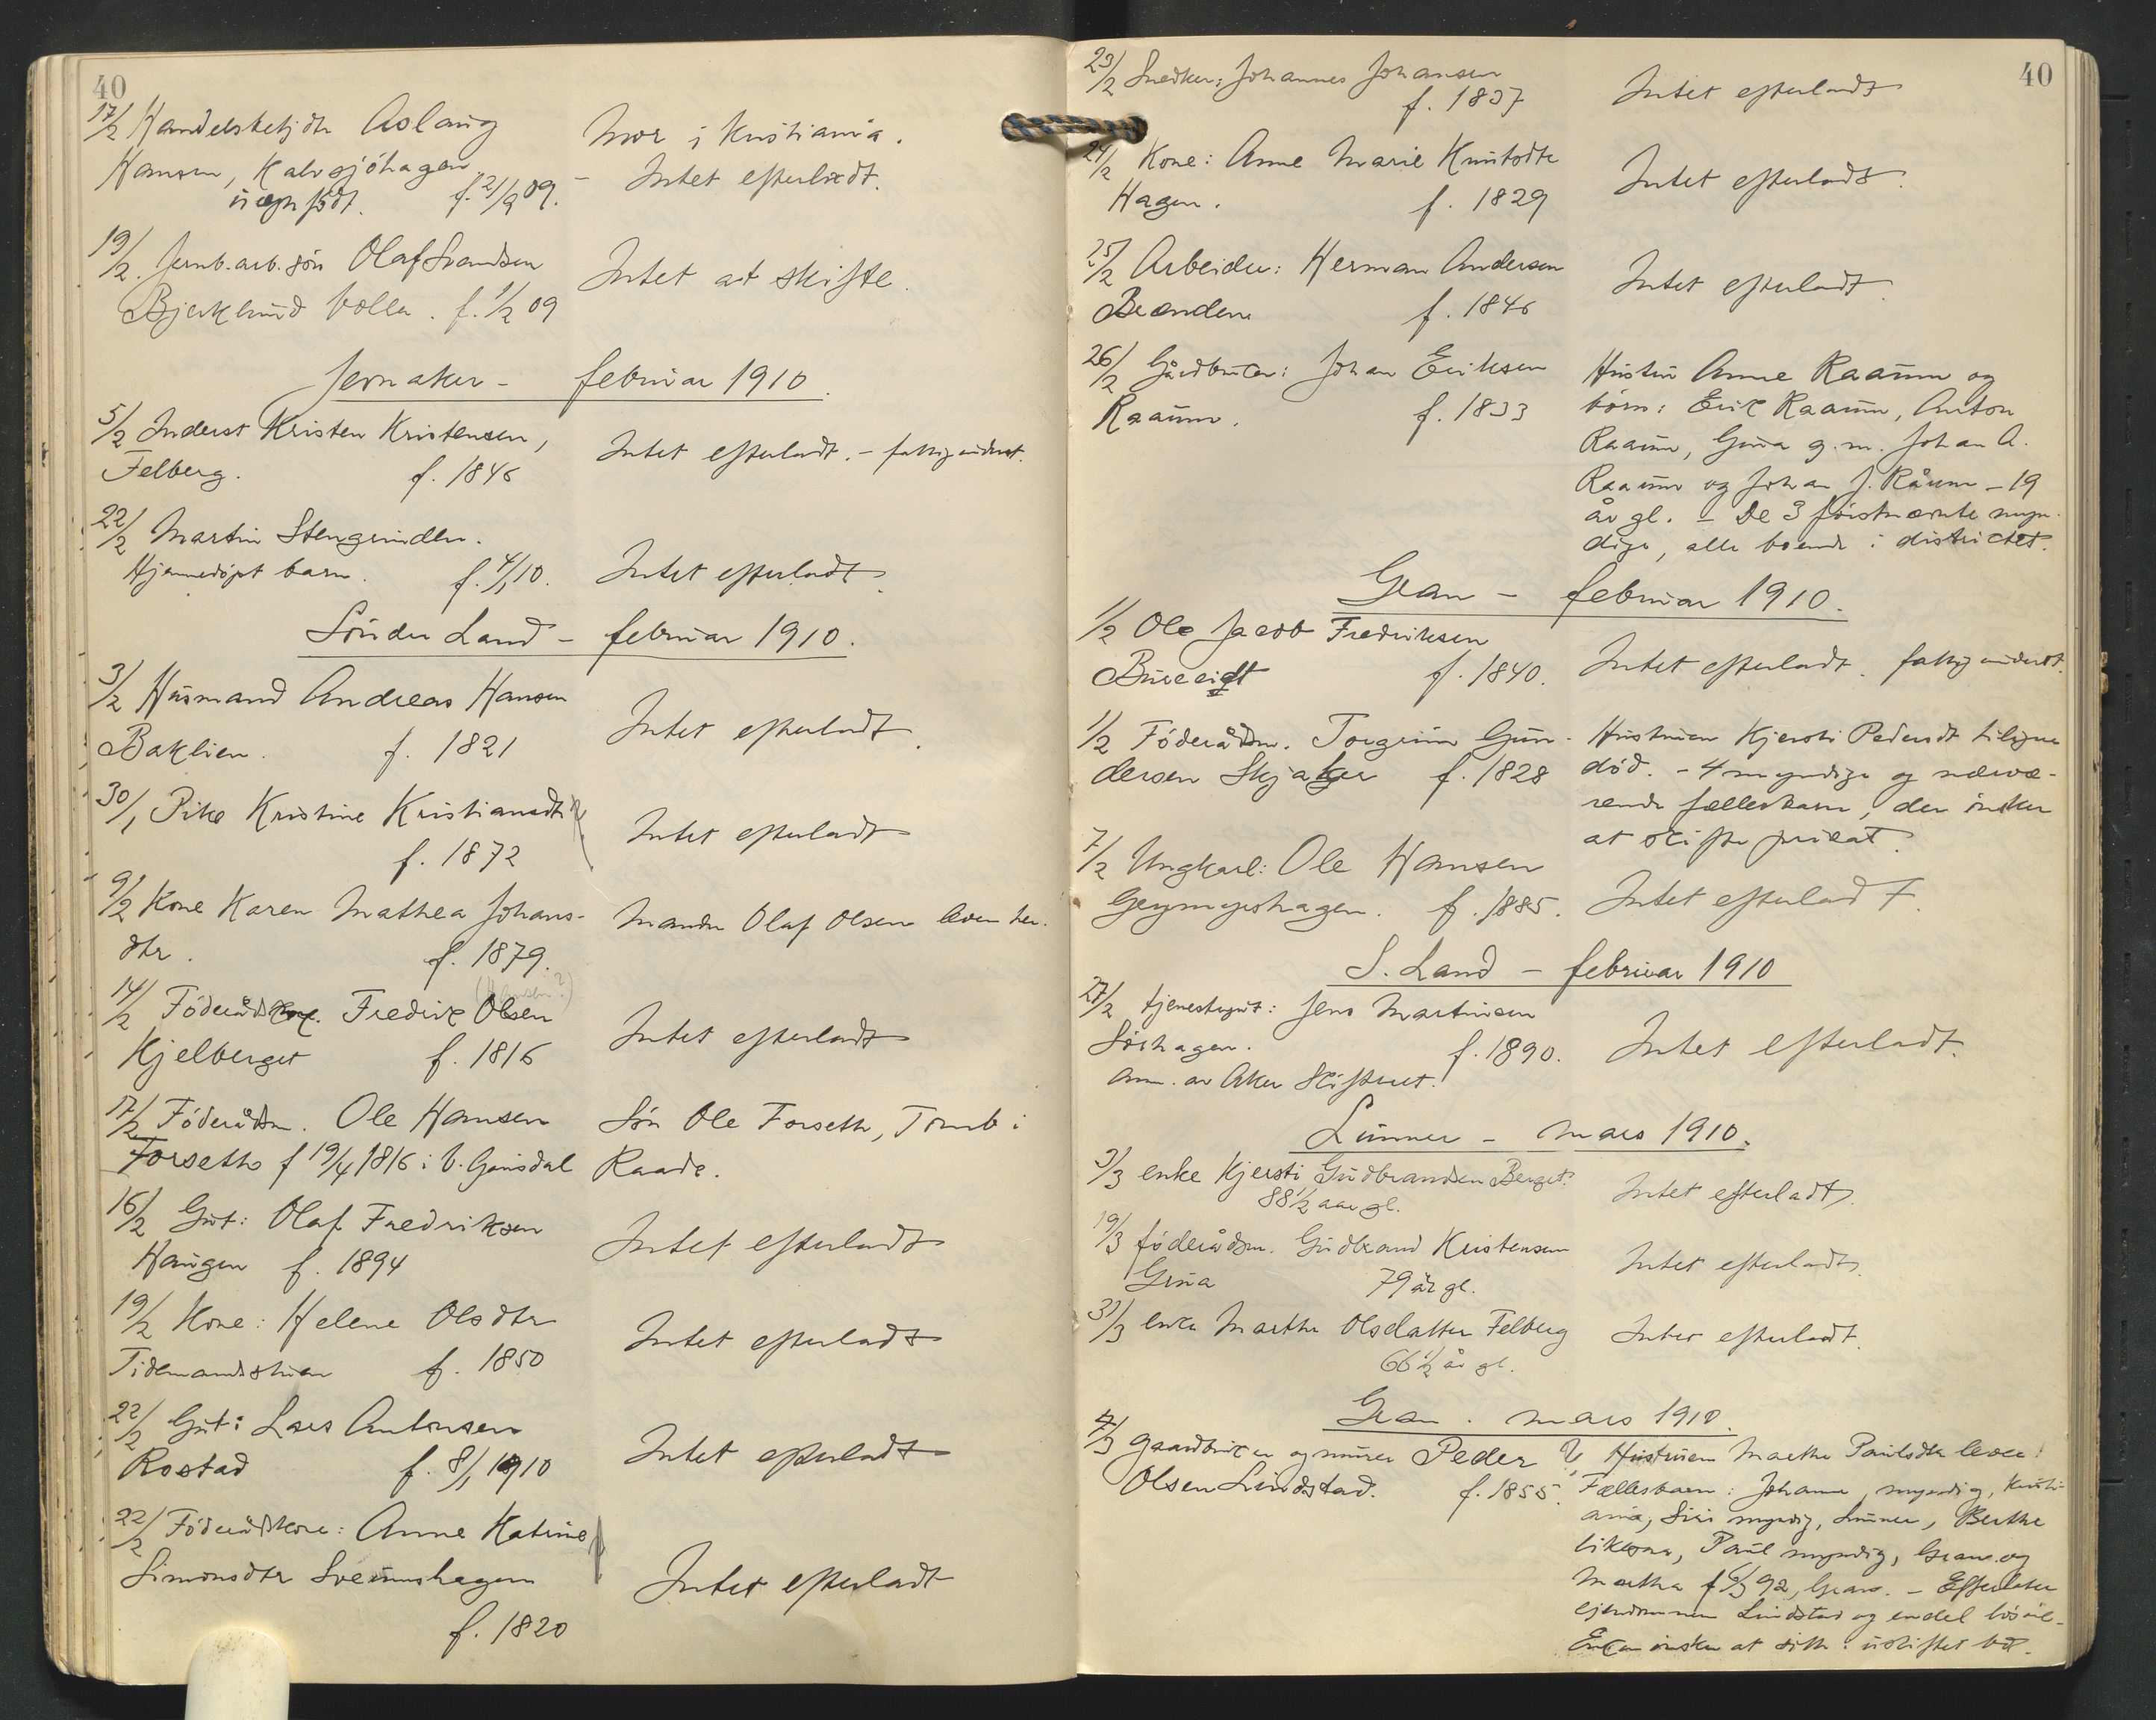 40
17/2 Handelsbetj dtr Aslaug
Hansen, Kalvsjöhagen
uegte födt. f. 2/9 09.
Mor i Kristiania.
- Intet efterladt.
19/2. Jernb.arb. sön Olaf Svendsen
Bjerklund Volla. f. 1/2 09
Intet at skifte.
Jevnaker - februar 1910.
5/2 Inderst Kristen Kristensen,
Felberg. f. 1846
Intet efterladt. - fattigunderst.
22/2 Martin Stengrinden.
Hjemmedöpt barn. f. 4/1 10.
Intet efterladt.
Sönder Land - februar 1910.
3/2 Husmand Andreas Hansen
Baklien. f. 1821
Intet efterladt.
30/1 Pike Kristine Kristiansdtr
f. 1872
Intet efterladt
9/2 Kone Karen Mathea Johans-
dtr. f. 1879.
Manden Olaf Olsen lever her.
14/2 Föderåds Fredrik Olsen
Kjelberget f. 1816
Intet efterladt
17/2 Föderådsm. Ole Hansen
Forseth f 19/4 1816 i V. Gausdal
Sön Ole Forseth, Tomb i
Raade.
16/2 Gut: Olaf Fredriksen
Haugen f. 1894
Intet efterladt
19/2 Kone: Helene Olsdtr
Tidemandstuen f. 1850
Intet efterladt
22/2 Gut: Lars Antonsen
Rostad f. 8/1 1910
Intet efterladt
22/2 Föderådskone: Anne Katrine
Simonsdtr Sveumshagen
f. 1820
Intet efterladt
40
23/2 Snedker: Johannes Johansen
f. 1837
Intet efterladt
24/2 Kone: Anne Marie Knutsdtr
Hagen. f. 1829
Intet efterladt.
25/2 Arbeider: Herman Andersen
Brænden f. 1846
Intet efterladt.
26/2 Gårdbruker: Johan Eriksen
Raaum. f. 1833
Hustru Anne Raaum og
börn: Erik Raaum, Anton
Raaum, Gina g.m. Johan A.
Raaum og Johan J. Råum - 19
år gl. - De 3 förstnævnte myn-
dige, alle boende i distriktet.
Gran - februar 1910.
1/2 Ole Jacob Fredriksen
Bureeigt f. 1840.
Intet efterladt. fattigunderst.
1/2 Föderådsm. Torgrim Gun-
dersen Skjaker f. 1828
Hustruen Kjersti Pedersdt tilligne
död. - 4 myndige og nærvæ-
rende fællesbarn, der önsker
at skifte privat.
7/2 Ungkarl: Ole Hansen
Grymyrhagen. f. 1885.
Intet efterladt.
S. Land - februar 1910
27/2 tjenestegut: Jens Martinsen
Sörhagen. f. 1890.
Anm. av Aker Skifteret.
Intet efterladt.
Lunner - mars 1910.
3/3 enke Kjersti Gudbrandsen Berget.
88 1/2 aar gl.
Intet efterladt.
19/3 föderådsm. Gudbrand Kristensen
Grua 79 år gl.
Intet efterladt.
31/3 enke Marthe Olsdatter Felberg
66 1/2 år gl.
Intet efterladt.
Gran. mars 1910.
4/3 gaardbruker og murer Peder
Olsen Lindstad. f. 1855.
Hustruen Marthe Paulsdtr lever.
Fællesbarn: Johanne, myndig, Kristi-
ania, Siri myndig, Lunner, Berthe
likesaa, Paul myndig, Gran og
Martha f 92, Gran. - Efterlater
eiendommen Lindstad og endel lösöre.
Enken önsker at sitte i uskiftet bo.